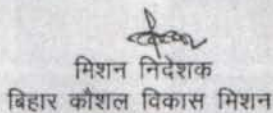 मिशन निदेशक
बिहार कौशल विकास मिशन